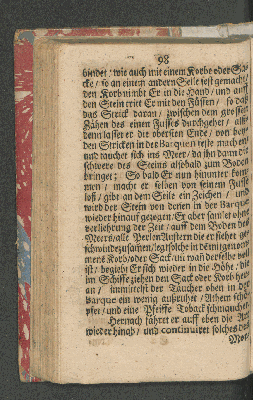 98
bindet / wie auch mit einem Korbe oder Sä-
cke / so an einem andern Seile fest gemacht /
den Korb nimbt Er in die Hand / und auff
den Stein tritt Er mit den Füssen / so daß
das Strick daran / zwischen dem grossen
Zähen des einen Fusses durchgehet / als-
denn lasset er die obersten Ende / von bey-
den Stricken in der Barquen feste machen /
und tauchet sich ins Meer / da ihn dann die
schwere des Steins alsbald zum Boden
bringet; So bald Er nun hinunter kom-
men / macht er selben von seinem Fusse
loß / gibt an dem Seile ein Zeichen / und
wird der Stein von denen in der Barque
wieder hinauf gezogen. Er aber samlet ohne
verliehrung der Zeit / auff dem Boden des
Meers / alle Perlen Austern die er sieher ge-
schwinde zusamen / legt solche in den mitgenom-
mene Korb / oder Sack uñ wañ derselbe voll
ist / begibt Er sich wieder in die Höhe / die
im Schiffe ziehen den Sack oder Korb her-
an / immittelst der Taucher oben in der
Barque ein wenig ausruhet / Athem schö-
pfet / und eine Pfeiffe Toback schmauchet.
Hernach fähret er auff eben die Art
wieder hinab / und continuiret solches des